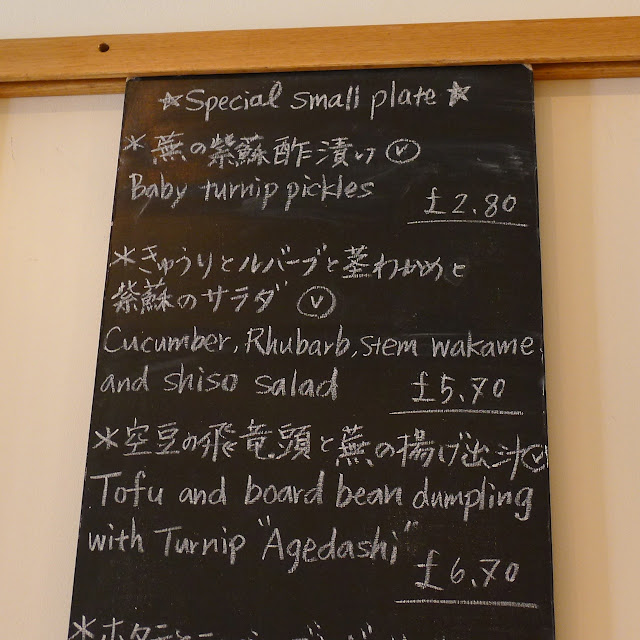 ☆Special small plate☆
*蕪の紫蘇酢漬け Ⓥ
Baby turnip pickles
£2.80
*きゅうりとルバーブと茎わかめと
紫蘇のサラダ Ⓥ
Cucumber, Rhubarb, stem wakame
and shiso salad
£5.70
*空豆の飛竜頭と蕪の揚げ出汁Ⓥ
Tofu and board bean dumpling
with Turnip "Agedashi"
£6.70
*ホタテと